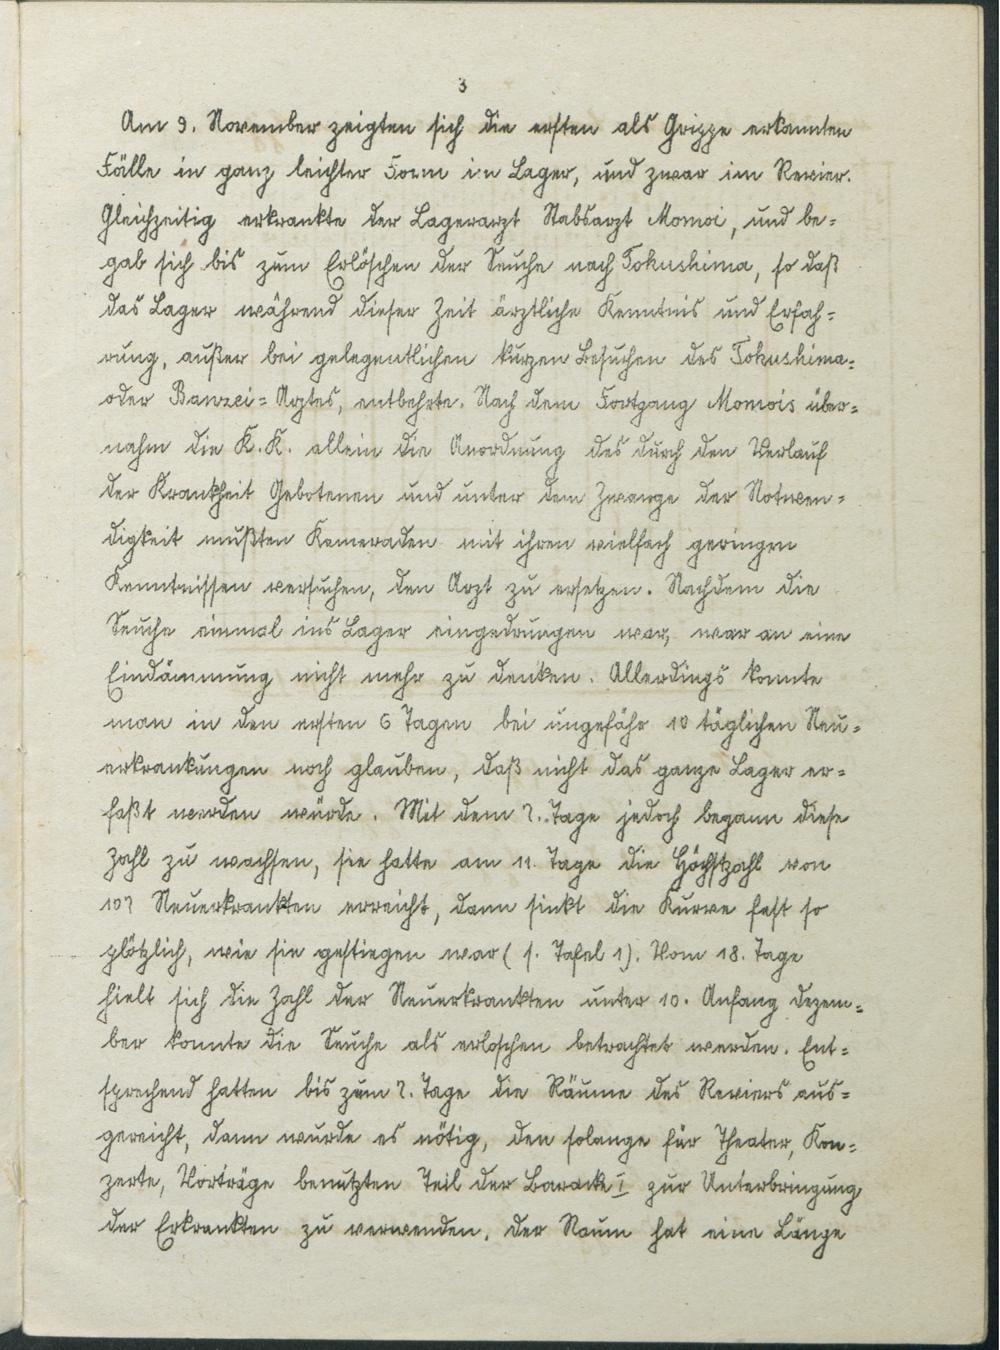 3
Am 9. November zeigten sich die ersten als Grippe erkannten
Fälle in ganz leichter Form im Lager, und zwar im Revier.
Gleichzeitig erkrankte der Lagerarzt Stabsarzt Momoi, und be=
gab sich bis zum Erlöschen der Seuche nach Tokushima, so daß
das Lager während dieser Zeit ärztliche Kenntnis und Erfah=
rung, außer bei gelegentlichen kurzen Besuchen des Tokushima=
oder Banzei=Arztes, entbehrte. Nach dem Fortgang Momois über=
nahm die K.K. allein die Anordnung des durch den Verlauf
der Krankheit Gebotenen und unter dem Zwange der Notwen=
digkeit mußten Kameraden mit ihren vielfach geringen
Kenntnissen versuchen, den Arzt zu ersetzen. Nachdem die
Seuche einmal ins Lager eingedrungen war, war an eine
Eindämmung nicht mehr zu denken. Allerdings konnte
man in den ersten 6 Tagen bei ungefähr 10 täglichen Neu=
erkrankungen noch glauben, daß nicht das ganze Lager er=
faßt werden würde. Mit dem 7. Tage jedoch begann diese
Zahl zu wachsen, sie hatte am 11. Tage die Höchstzahl von
107 Neuerkrankten erreicht, dann sinkt die Kurve fast so
plötzlich, wie sie gestiegen war (s. Tafel 1). Vom 18. Tage
hielt sich die Zahl der Neuerkrankten unter 10. Anfang Dezem=
ber konnte die Seuche als erloschen betrachtet werden. Ent=
sprechend hatten bis zum 7. Tage die Räume des Reviers aus=
gereicht, dann wurde es nötig, den solange für Theater, Kon=
zerte, Vorträge benutzten Teil der Baracke I zur Unterbringung
der Erkrankten zu verwenden. Der Raum hat eine Länge